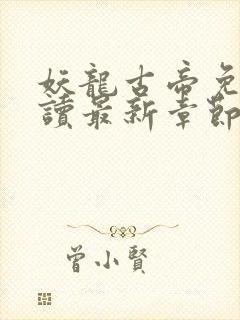 妖龍古帝免
讀最新章節
曾小賢